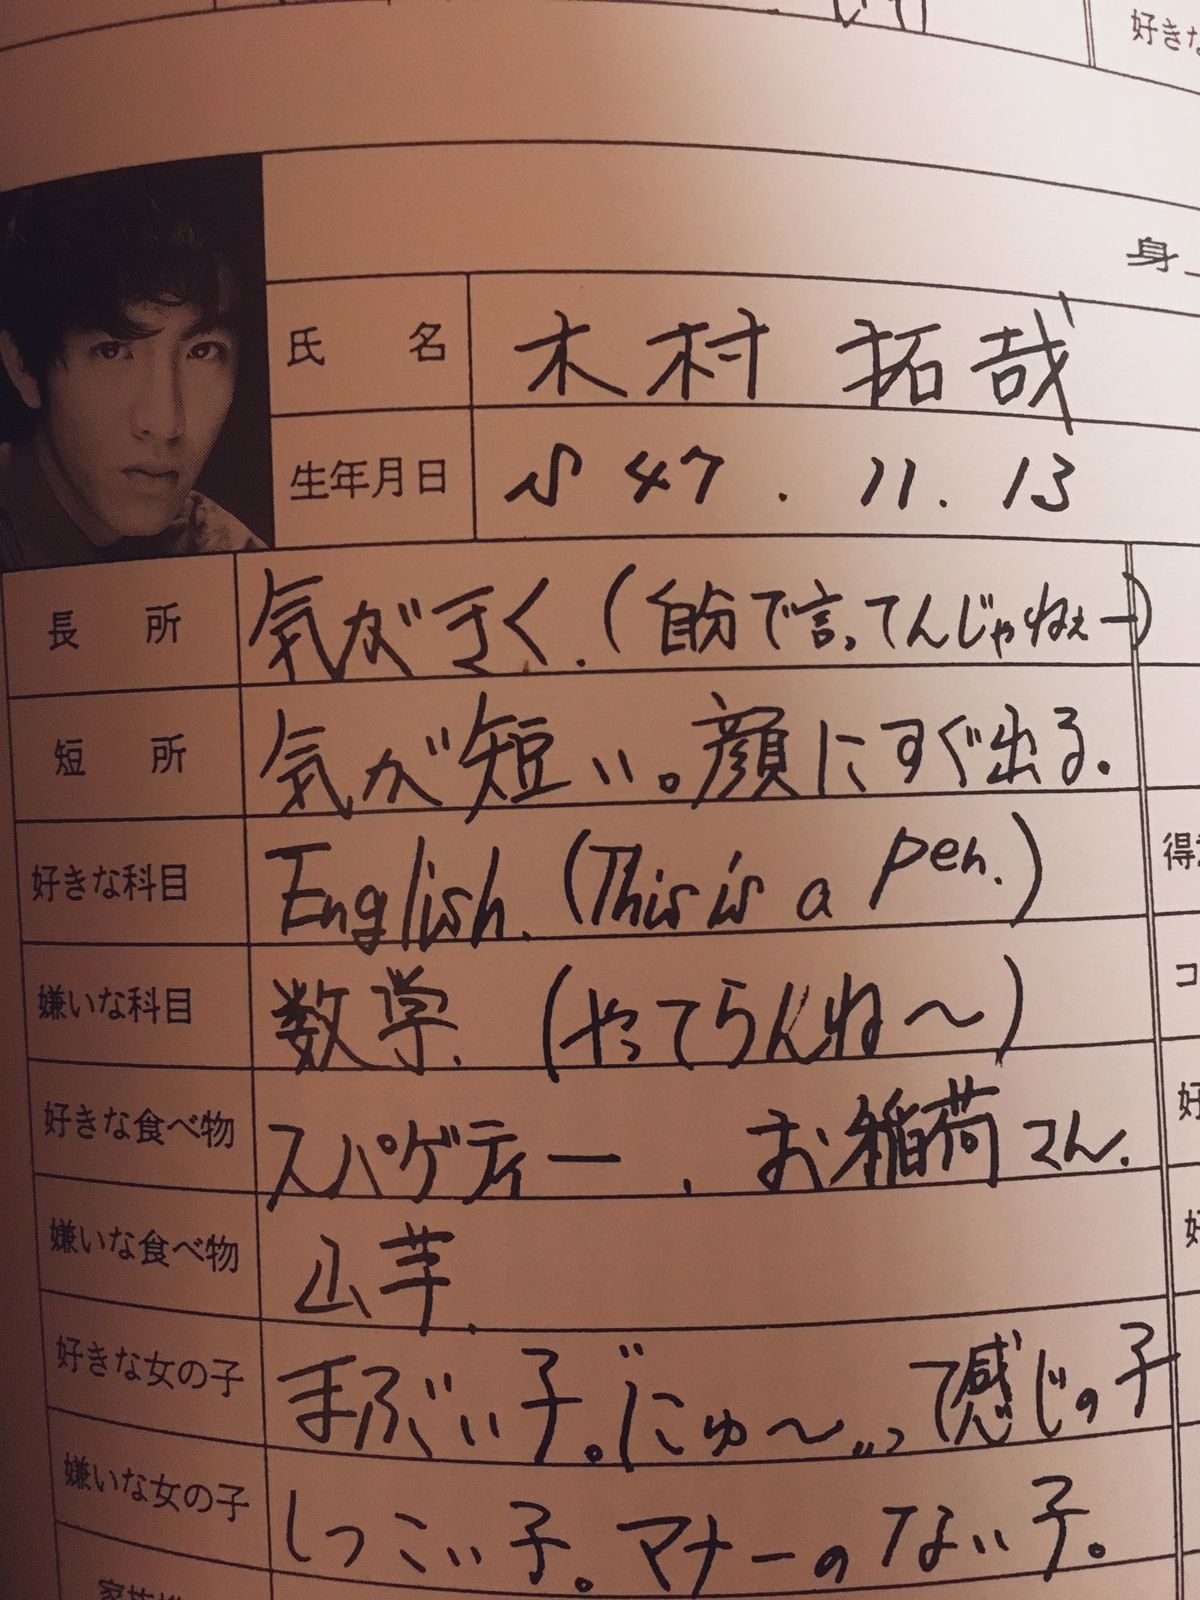 好きな
身上
氏 名 木村 拓哉
生年月日 S 47. 11. 13
長 所 気がきく.(自分で言ってんじゃねぇー)
短 所 気が短い。顔にすぐ出る。
好きな科目 English. (This is a pen.)
嫌いな科目 数学. (やってらんね〜)
好きな食べ物 スパゲティー、お稲荷さん.
嫌いな食べ物 山芋.
好きな女の子 まぶい子。"にゅ〜"って感じの子
嫌いな女の子 しつこい子。マナーのない子。
得意
コ
好
好